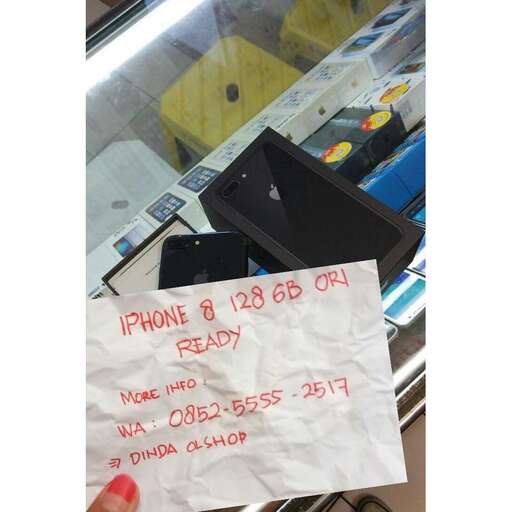 IPHONE 8 128 GB ORI
READY
MORE INFO :
WA : 0852-5555-2517
⇒ DINDA OLSHOP